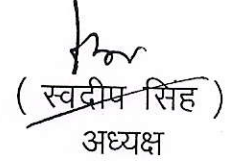 ( स्वदीप सिंह )
अध्यक्ष